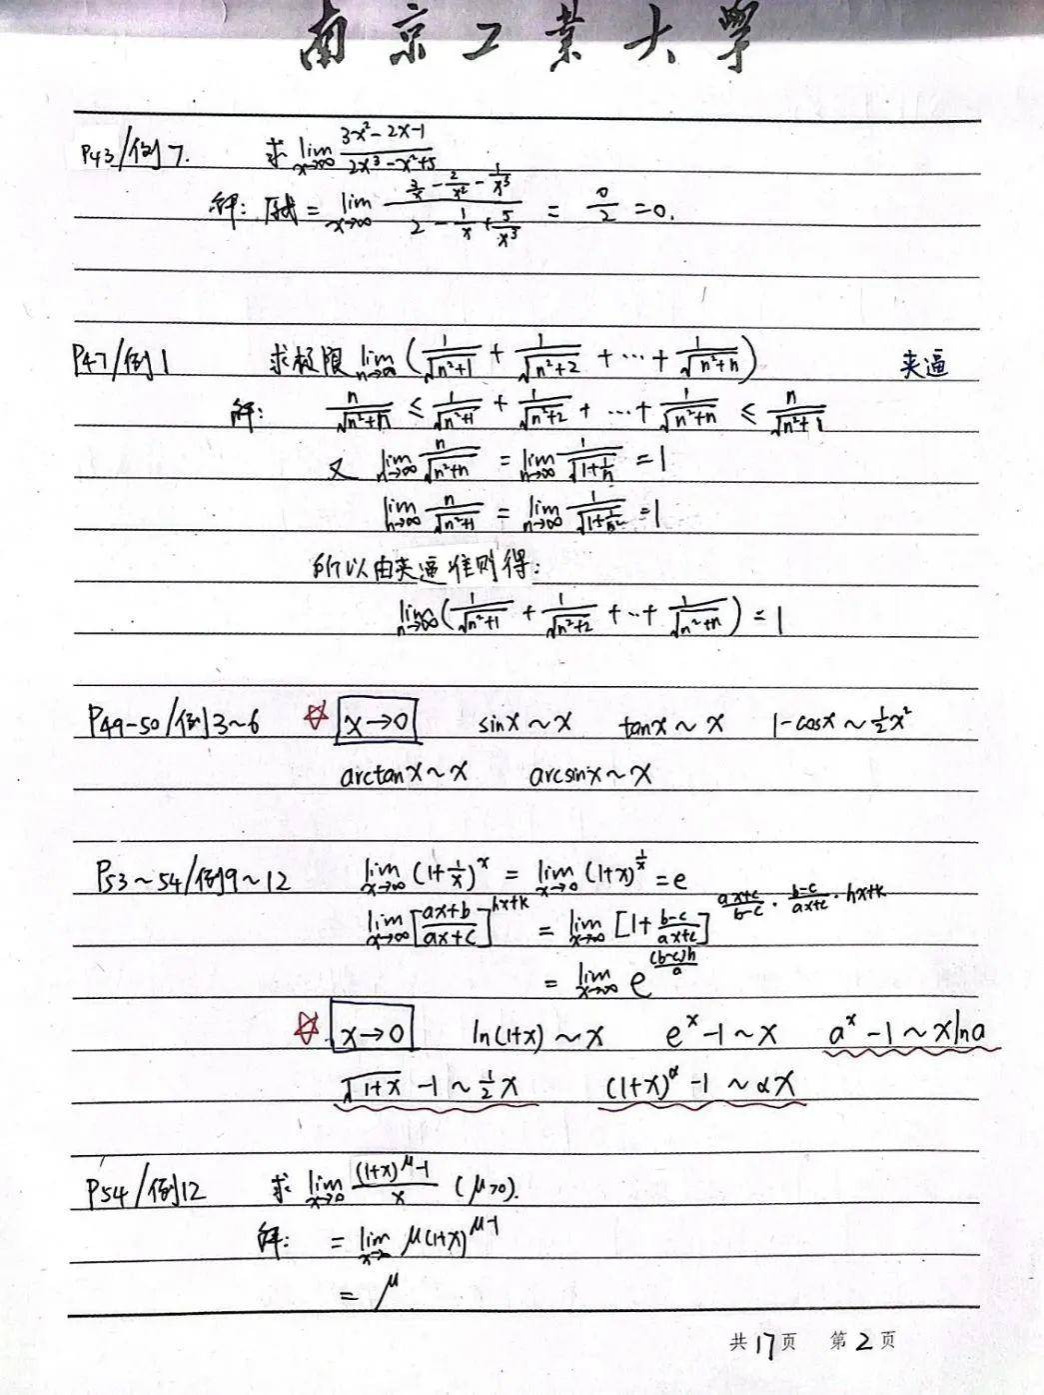 南京工业大学
P43/例7. 求 lim_{x→∞} (3x²-2x-1)/(2x³-x²+5)
解: 原式 = lim_{x→∞} (3/x - 2/x² - 1/x³)/(2 - 1/x + 5/x³) = 0/2 = 0.
P47/例1 求极限 lim_{n→∞} (1/√(n²+1) + 1/√(n²+2) + ⋯ + 1/√(n²+n)) 夹逼
解: n/√(n²+n) ≤ 1/√(n²+1) + 1/√(n²+2) + ⋯ + 1/√(n²+n) ≤ n/√(n²+1)
又 lim_{n→∞} n/√(n²+n) = lim_{n→∞} 1/√(1+1/n) = 1
lim_{n→∞} n/√(n²+1) = lim_{n→∞} 1/√(1+1/n²) = 1
所以由夹逼准则得:
lim_{n→∞} (1/√(n²+1) + 1/√(n²+2) + ⋯ + 1/√(n²+n)) = 1
P49-50/例3~6 ☆ x→0 sinx~x tanx~x 1-cosx~½x²
arctanx~x arcsinx~x
P53~54/例9~12 lim_{x→∞} (1+1/x)^x = lim_{x→0} (1+x)^{1/x} = e
lim_{x→∞} [(ax+b)/(ax+c)]^{hx+k} = lim_{x→∞} [1+(b-c)/(ax+c)]^{(ax+c)/(b-c) · (b-c)/(ax+c) · hx+k}
= lim_{x→∞} e^{(b-c)h/a}
☆ x→0 ln(1+x)~x e^x-1~x a^x-1~xlna
√(1+x)-1~½x (1+x)^α-1~αx
P54/例12 求 lim_{x→0} ((1+x)^μ-1)/x (μ>0).
解: = lim_{x→} μ(1+x)^{μ-1}
= μ
共17页 第2页